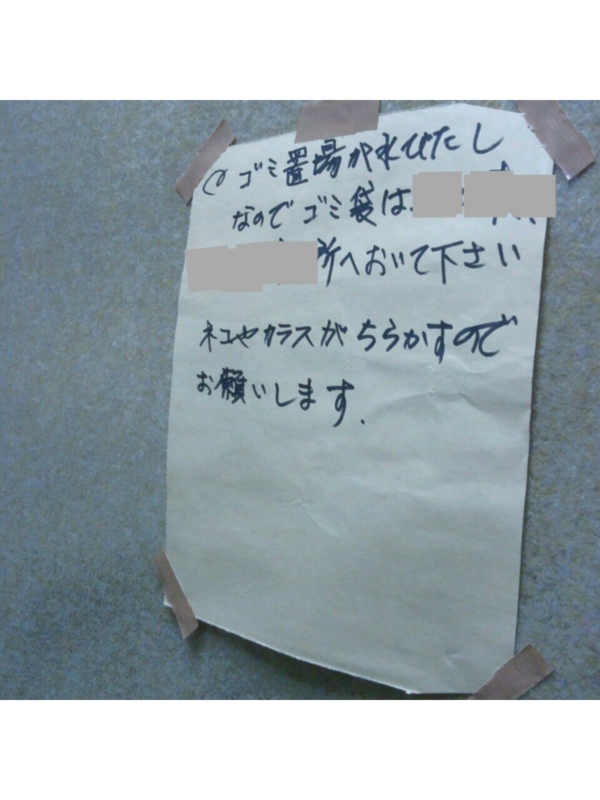 ゴミ置場が水びたし
なのでゴミ袋は
所へおいて下さい
ネコやカラスがちらかすので
お願いします.